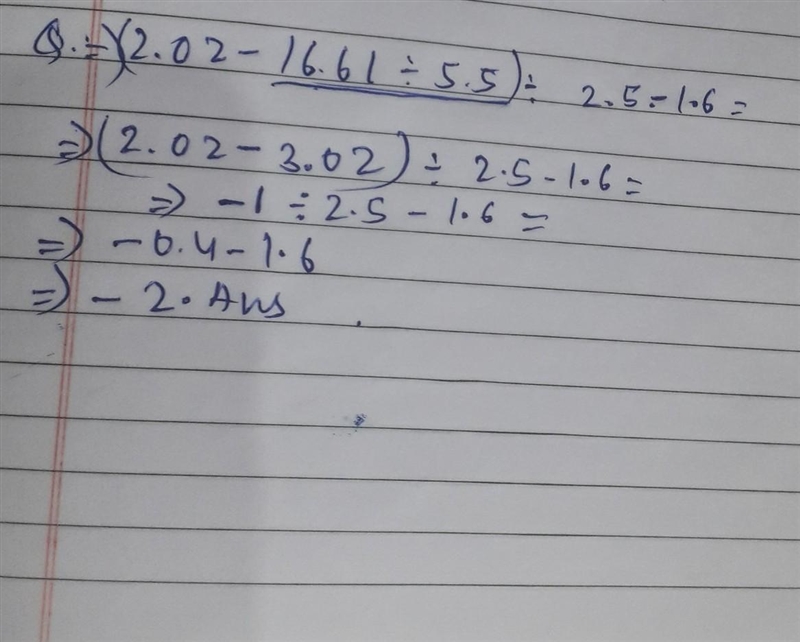 Q.:-) (2.02 - 16.61 ÷ 5.5) ÷ 2.5 - 1.6 =
=> (2.02 - 3.02) ÷ 2.5 - 1.6 =
=> -1 ÷ 2.5 - 1.6 =
=> -0.4 - 1.6
=> - 2. Ans